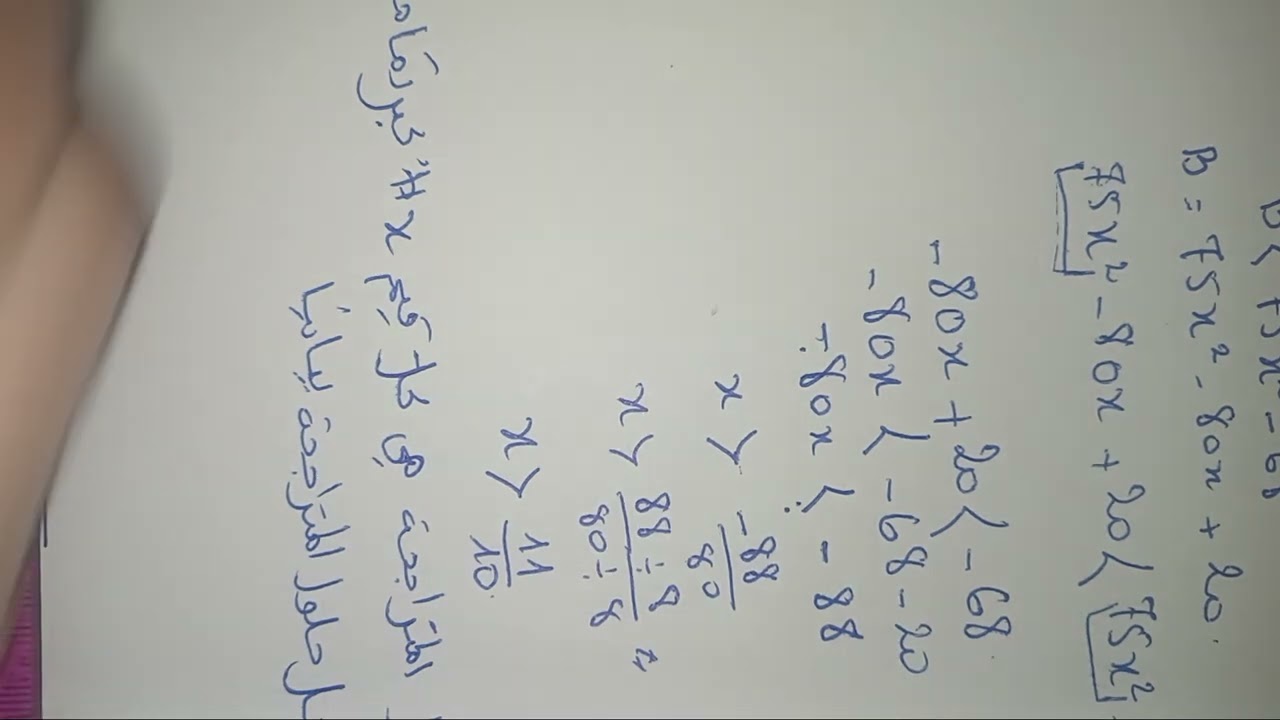 B < 75x² - 68
B = 75x² - 80x + 20.
75x² - 80x + 20 < 75x²
-80x + 20 < -68
-80x < -68 - 20
-80x < -88
x > -88/80
x > 88÷8/80÷8 =
x > 11/10
المتراجحة هي كل قيم x
حلول المتراجحة بيانيا